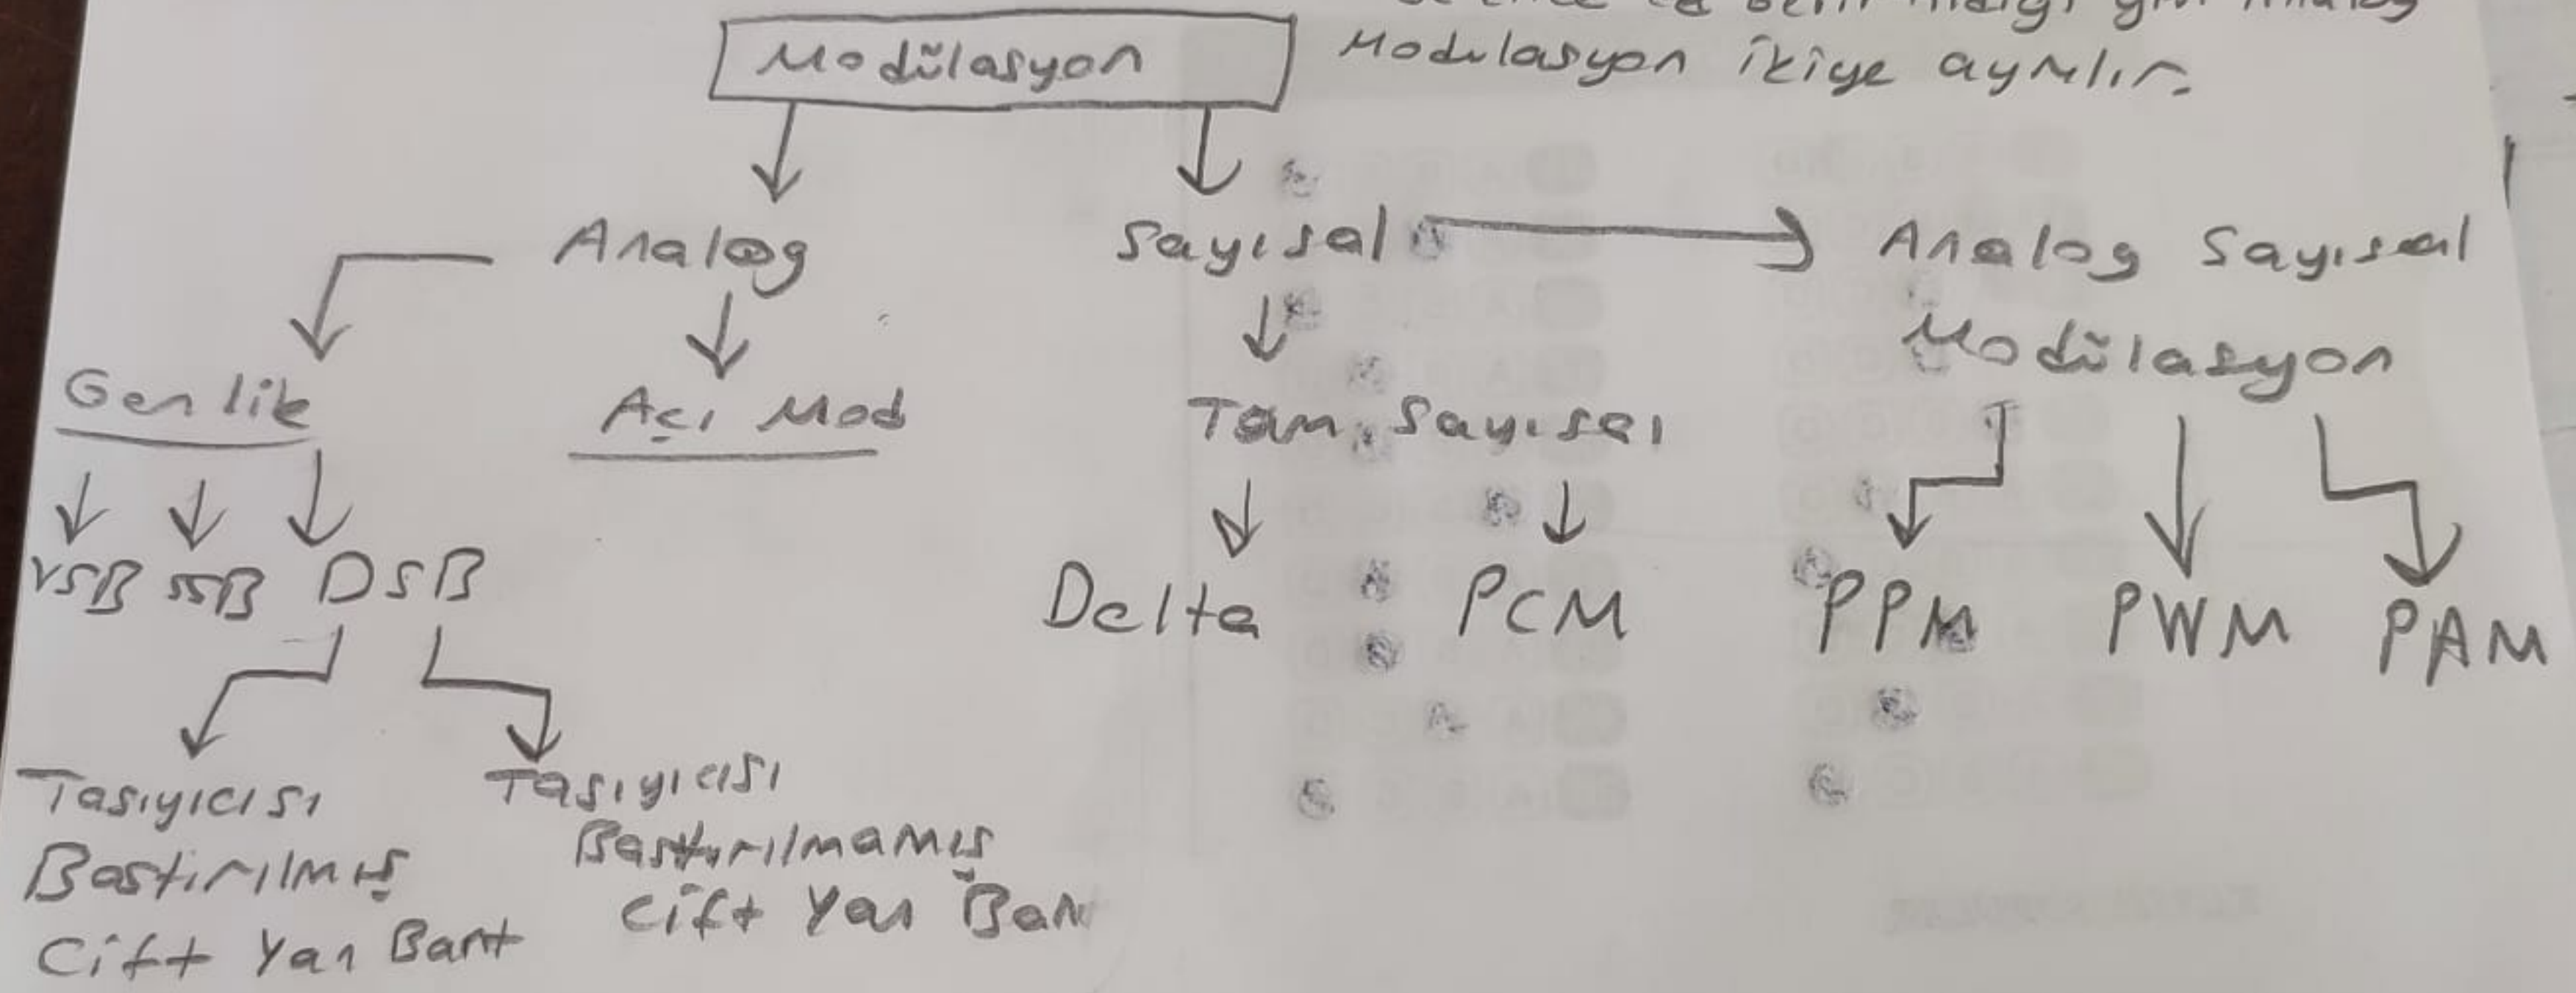 Modülasyon
Modulasyon ikiye ayrılır.
Analog Sayısal Analog Sayısal
Modülasyon
Genlik Açı Mod Tam Sayısal
VSB SSB DSB Delta PCM PPM PWM PAM
Tasıyıcısı
Bastırılmış
Cift Yan Bant
Tasıyıcısı
Bastırılmamış
Cift Yan Ban